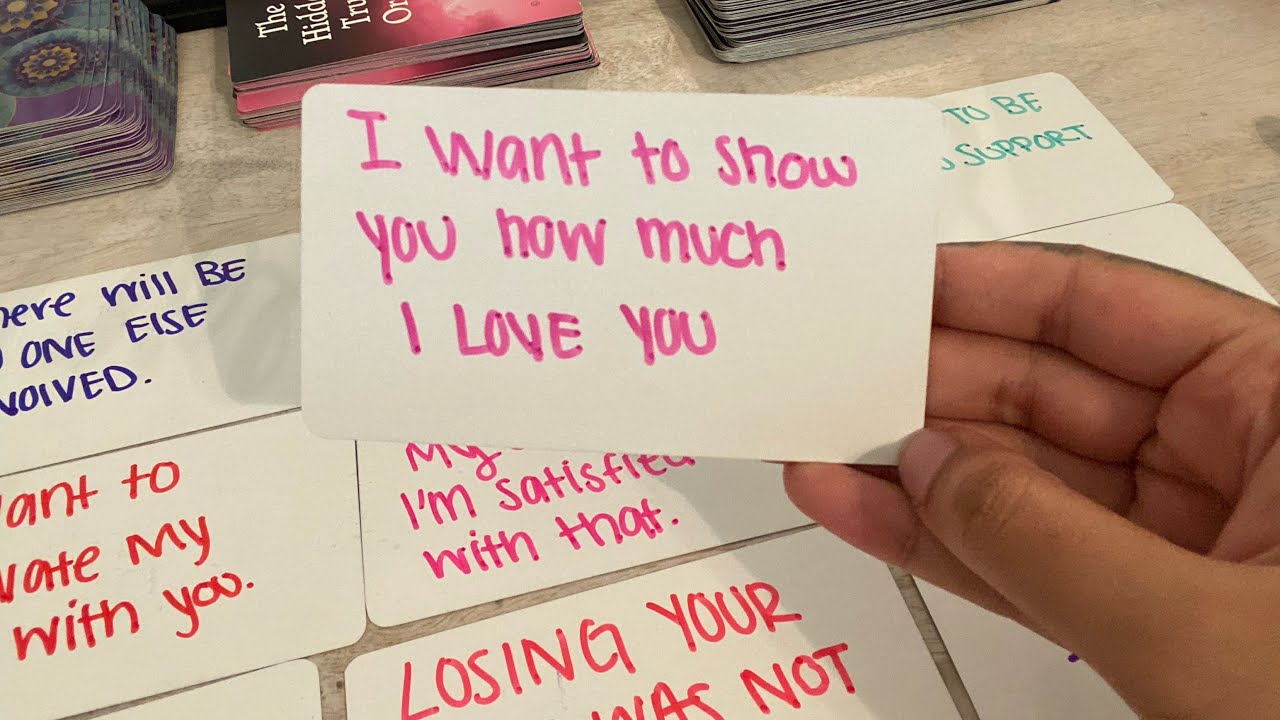 The
Hidd
Tru
Or
I Want to Show
you how much
I LOVE YOU
TO BE
SUPPORT
here will BE
ONE ELSE
VOLVED.
ant to
vate My
with you.
My
I'm satisfied
with that.
LOSING YOUR
WAS NOT